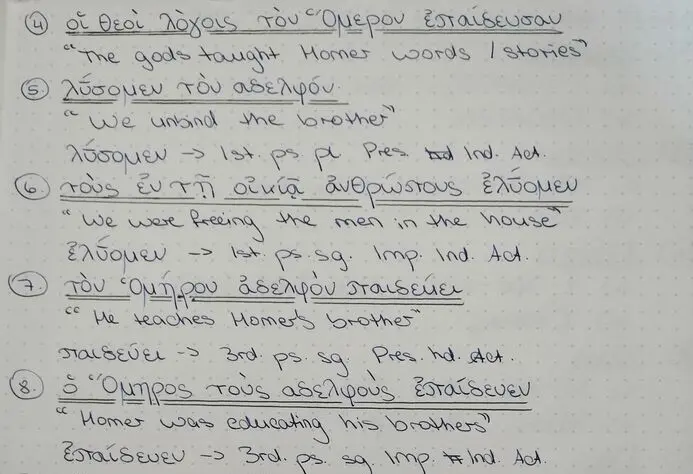 ④ οἵ θεοὶ λόγοις τὸν Ὅμερον ἐπαίδευσαν
"The gods taught Homer words / stories"
⑤. λύσομεν τὸν αδελφόν.
"We unbind the brother"
λύσομεν -> 1st. ps pl Pres. Ind. Act.
⑥ τοὺς ἐν τῇ οἰκίᾳ ἀνθρώπους ἐλύομεν
"We were freeing the men in the house"
ἐλύομεν -> 1st. ps. sg. Imp. Ind. Act.
⑦. τὸν Ὁμήρου ἀδελφὸν παιδεύει
"He teaches Homer's brother"
παιδεύει -> 3rd. ps. sg. Pres. Ind. Act.
⑧. ὁ Ὅμηρος τοὺς αδελφοὺς ἐπαίδευεν
"Homer was educating his brothers"
ἐπαίδευεν -> 3rd. ps. sg Imp. Ind. Act.